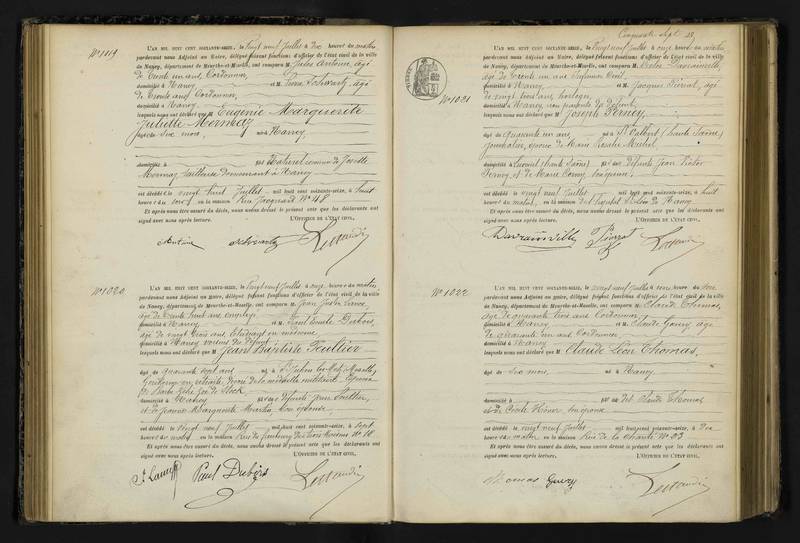 N° 1119
L'AN MIL HUIT CENT SOIXANTE-SEIZE, le vingt neuf Juillet à dix heures du matin
pardevant nous Adjoint au Maire, délégué faisant fonctions d'officier de l'état civil de la ville
de Nancy, département de Meurthe-et-Moselle, ont comparu M. Jules Antoine, âgé
de trente un ans, Cordonnier,
domicilié à Nancy et M. Pierre Schwartz, âgé
de trente ans, Cordonnier,
domicilié à Nancy
lesquels nous ont déclaré que M Eugénie Marguerite
Juliette Mermetz
âgée de six mois, née à Nancy,
domiciliée à fille Naturel
Mermaz, tailleuse demeurant à Nancy
est décédé le vingt huit Juillet mil huit cent soixante-seize, à huit
heures du soir, en la maison Rue Jacquard N° 48
Et après nous être assuré du décès, nous avons dressé le présent acte que les déclarants ont
signé avec nous après lecture. L'OFFICIER DE L'ÉTAT CIVIL,
Antoine Schwartz
N° 1020
L'AN MIL HUIT CENT SOIXANTE-SEIZE, le vingt neuf Juillet à onze heures du matin
pardevant nous Adjoint au Maire, délégué faisant fonctions d'officier de l'état civil de la ville
de Nancy, département de Meurthe-et-Moselle, ont comparu M. Jean Justin
âgé de trente huit ans, employé
domicilié à Nancy et M. Paul Emile Dubois,
âgé de vingt trois ans, Etudiant en médecine
domicilié à Nancy voisins du défunt
lesquels nous ont déclaré que M Jean Baptiste
âgé de quarante sept ans né à
Gendarme en retraite, décoré de la médaille militaire, époux
de
domicilié à Nancy fils de défunts Jean
et de Jeanne Marguerite Martin, son épouse,
est décédé le vingt neuf Juillet mil huit cent soixante-seize, à sept
heures du matin, en la maison Rue du faubourg des trois Maisons N° 18
Et après nous être assuré du décès, nous avons dressé le présent acte que les déclarants ont
signé avec nous après lecture. L'OFFICIER DE L'ÉTAT CIVIL,
Paul Dubois
Cinquante sept
N° 1021
L'AN MIL HUIT CENT SOIXANTE-SEIZE, le vingt neuf Juillet à onze heures du matin
pardevant nous Adjoint au Maire, délégué faisant fonctions d'officier de l'état civil de la ville
de Nancy, département de Meurthe-et-Moselle, ont comparu M. Victor Darrainville,
âgé de trente un ans
domicilié à Nancy et M. Jacques Pierrat, âgé
de vingt trois ans, horloger,
domicilié à Nancy, non parents du défunt,
lesquels nous ont déclaré que M Joseph Perney,
âgé de quarante un ans, né à St Valbert (haute Saône)
Journalier, époux de Marie Rosalie
domicilié à Luxeuil (haute Saône) fils des défunts Jean Victor
Perney, et de Marie son épouse,
est décédé le vingt neuf Juillet mil huit cent soixante-seize, à huit
heures du matin, en la maison de l'hôpital St Léon de Nancy
Et après nous être assuré du décès, nous avons dressé le présent acte que les déclarants ont
signé avec nous après lecture. L'OFFICIER DE L'ÉTAT CIVIL,
Darrainville Pierrat
N° 1022
L'AN MIL HUIT CENT SOIXANTE-SEIZE, le vingt neuf Juillet à heures du soir
pardevant nous Adjoint au Maire, délégué faisant fonctions d'officier de l'état civil de la ville
de Nancy, département de Meurthe-et-Moselle, ont comparu M. Claude Thomas,
âgé de quarante trois ans, Cordonnier,
domicilié à Nancy et M. Claude Guery, âgé
de quarante un ans, Cordonnier
domicilié à Nancy
lesquels nous ont déclaré que M Claude Léon Thomas,
âgé de six mois, né à Nancy,
domicilié à fils de dit Claude Thomas
et de Cécile son épouse
est décédé le vingt neuf Juillet mil huit cent soixante-seize, à dix
heures du matin, en la maison Rue de la Charité N° 23
Et après nous être assuré du décès, nous avons dressé le présent acte que les déclarants ont
signé avec nous après lecture. L'OFFICIER DE L'ÉTAT CIVIL,
Thomas Guery